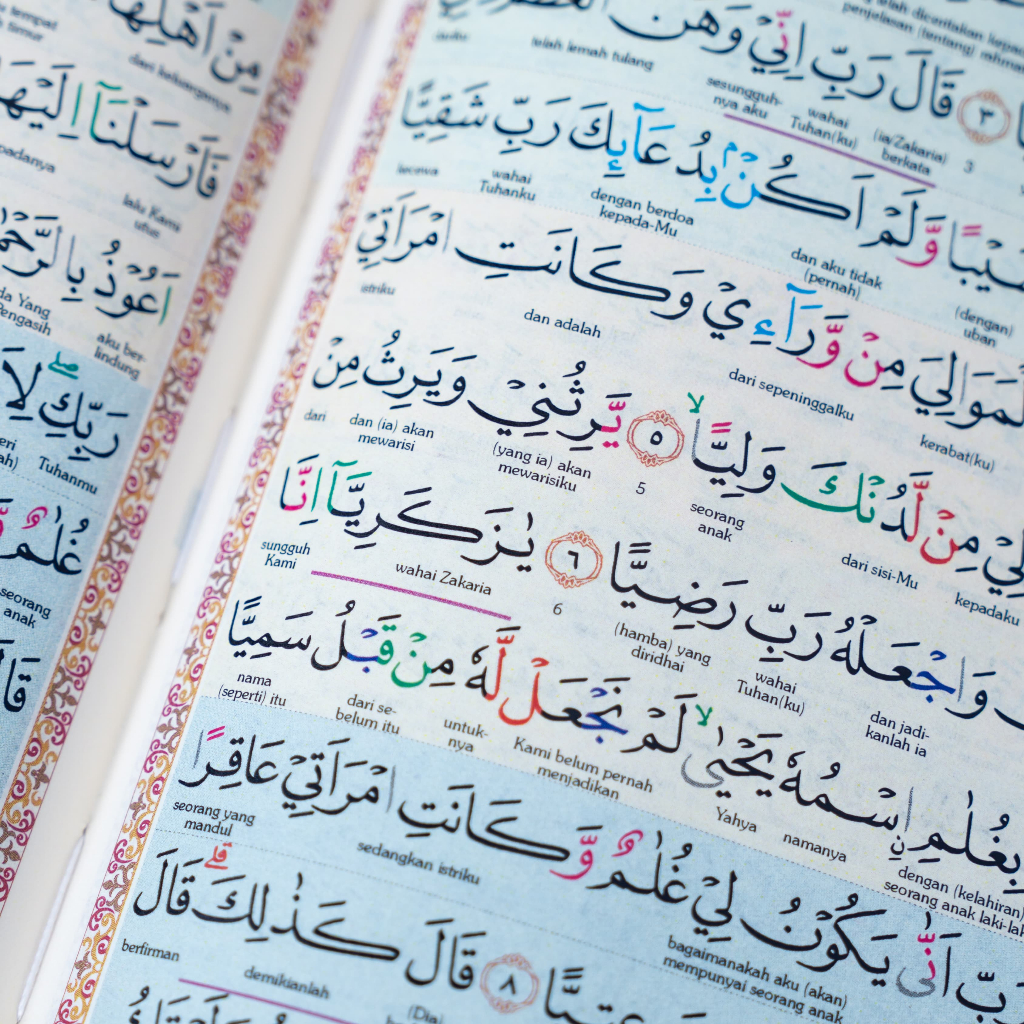 ٣ قَالَ رَبِّ اِنِّيْ وَهَنَ
3 (ia/Zakaria) berkata wahai Tuhan(ku) sesungguh-nya aku telah lemah tulang
وَّلَمْ اَكُنْۢ بِدُعَاۤىِٕكَ رَبِّ شَقِيًّا
(dengan) uban dan aku tidak (pernah) dengan berdoa kepada-Mu wahai Tuhanku kecewa
الْمَوَالِيَ مِنْ وَّرَاۤءِيْ وَكَانَتِ امْرَاَتِيْ
kerabat(ku) dari sepeninggalku dan adalah istriku
لِيْ مِنْ لَّدُنْكَ وَلِيًّا ۙ ٥ يَّرِثُنِيْ وَيَرِثُ مِنْ
kepadaku dari sisi-Mu seorang anak 5 (yang ia) akan mewarisiku dan (ia) akan mewarisi dari
وَاجْعَلْهُ رَبِّ رَضِيًّا ٦ يٰزَكَرِيَّآ اِنَّا
dan jadi-kanlah ia wahai Tuhan(ku) (hamba) yang diridhai 6 wahai Zakaria sungguh Kami
بِغُلٰمِ ِۨاسْمُهٗ يَحْيٰىۙ لَمْ نَجْعَلْ لَّهٗ مِنْ قَبْلُ سَمِيًّا
dengan (kelahiran) seorang anak laki-laki namanya Yahya Kami belum pernah menjadikan untuk-nya dari se-belum itu nama (seperti) itu
رَبِّ اَنّٰى يَكُوْنُ لِيْ غُلٰمٌ وَّكَانَتِ امْرَاَتِيْ عَاقِرًا
bagaimanakah aku (akan) mempunyai seorang anak sedangkan istriku seorang yang mandul
عِتِيًّا ٨ قَالَ كَذٰلِكَۗ قَالَ
(Dia) demikianlah berfirman
مِنْ اَهْلِهَا
dari keluarganya
فَاَرْسَلْنَآ اِلَيْهَا
lalu Kami utus
اَعُوْذُ بِالرَّحْمٰنِ
aku ber-lindung
رَبِّكِۖ لِاَ
Tuhanmu
غُلٰمٌ
seorang anak